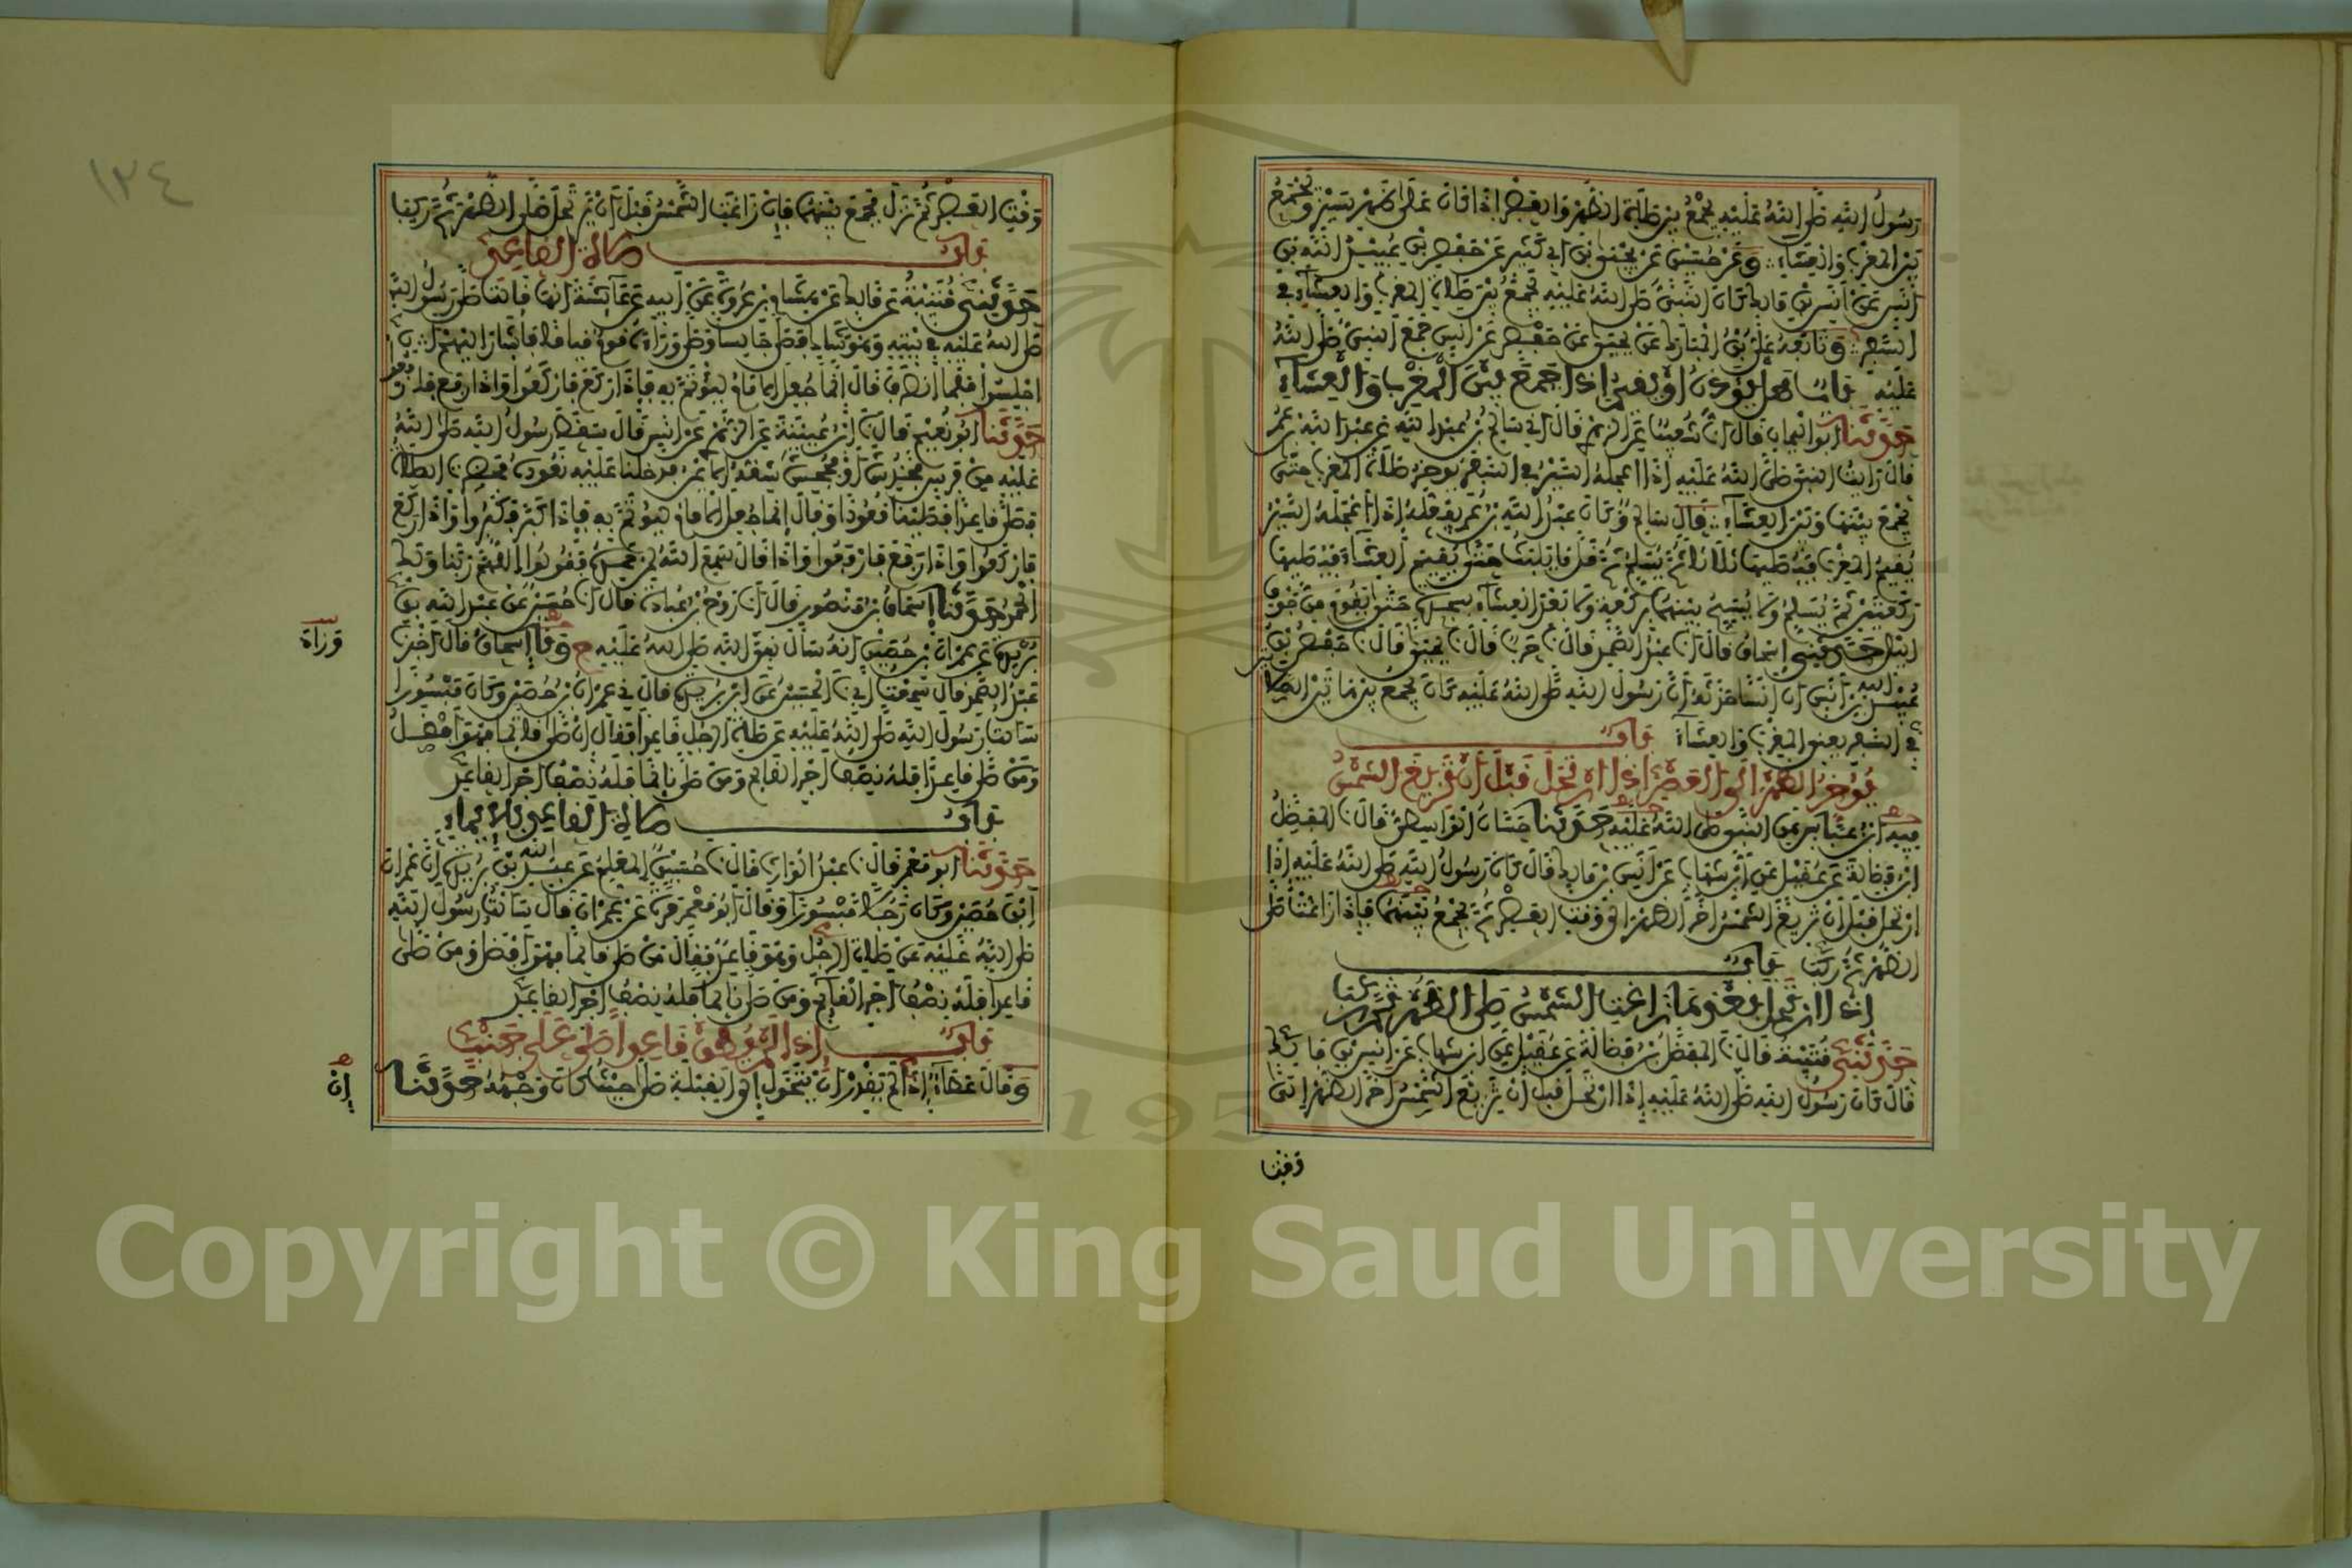 رَسُولُ اللهِ صلى اللهُ عَلَيْهِ يَجْمَعُ بين صَلَاةِ الظُّهْرِ وَالعَصْرِ إِذَا كَانَ عَلَى ظَهْرِ سَيْرٍ وَيَجْمَعُ
بَيْنَ المَغْرِبِ وَالعِشَاءِ وَعَنْ حُسَيْنٍ عَنْ يَحْيَى بْنِ أَبِي كَثِيرٍ عَنْ حَفْصِ بْنِ عُبَيْدِ اللهِ بْنِ
أَنَسٍ عَنْ أَنَسِ بْنِ مَالِكٍ كَانَ النَّبِيُّ صلى اللهُ عَلَيْهِ يَجْمَعُ بَيْنَ صَلَاةِ المَغْرِبِ وَالعِشَاءِ فِي
السَّفَرِ وَتَابَعَهُ عَلِيُّ بْنُ المُبَارَكِ عَنْ يَحْيَى عَنْ حَفْصٍ عَنْ أَنَسٍ جَمَعَ النَّبِيُّ صلى اللهُ
عَلَيْهِ بَابٌ هَل يُؤَذِّنُ أَوْ يُقِيمُ إِذَا جَمَعَ بَيْنَ المَغْرِبِ وَالعِشَاءِ
حَدَّثَنَا أَبُو اليَمَانِ قَالَ أنا شُعَيْبٌ عَنِ الزُّهْرِي قَالَ أخبرني سَالِمُ بْنُ عَبْدِ اللهِ عَنْ عَبْدِ اللهِ بْنِ عُمَرَ
قَالَ رَأَيْتُ النَّبِيَّ صلى اللهُ عَلَيْهِ إِذَا أَعْجَلَهُ السَّيْرُ فِي السَّفَرِ يُؤَخِّرُ صَلَاةَ المَغْرِبِ حَتَّى
يَجْمَعَ بَيْنَهَا وَبَيْنَ العِشَاءِ قَالَ سَالِمٌ وَكَانَ عَبْدُ اللهِ بْنُ عُمَرَ يَفْعَلُهُ إِذَا أَعْجَلَهُ السَّيْرُ
يُقِيمُ المَغْرِبَ فَيُصَلِّيهَا ثَلَاثًا ثُمَّ يُسَلِّمُ ثُمَّ قَلَّ مَا يَلْبَثُ حَتَّى يُقِيمَ العِشَاءَ فَيُصَلِّيهَا
رَكْعَتَيْنِ ثُمَّ يُسَلِّمُ وَلَا يُسَبِّحُ بَيْنَهُمَا بِرَكْعَةٍ وَلَا بَعْدَ العِشَاءِ بِسَجْدَةٍ حَتَّى يَقُومَ مِنْ جَوْفِ
اللَّيْلِ حَدَّثَنِي إِسْحَاقُ قَالَ نا عَبْدُ الصَّمَدِ قَالَ نا حَرْبٌ قَالَ نا يَحْيَى قَالَ نا حَفْصُ بْنُ
عُبَيْدِ اللهِ بْنِ أَنَسٍ أَنَّ أَنَسًا حَدَّثَهُ أَنَّ رَسُولَ اللهِ صلى اللهُ عَلَيْهِ كَانَ يَجْمَعُ بَيْنَ هَاتَيْنِ الصَّلَاتَيْنِ
فِي السَّفَرِ يَعْنِي المَغْرِبَ وَالعِشَاءَ بَابٌ
يُؤَخِّرُ الظُّهْرَ إِلَى العَصْرِ إِذَا ارْتَحَلَ قَبْلَ أَنْ تَزِيغَ الشَّمْسُ
فِيهِ ابْنُ عَبَّاسٍ عَنِ النَّبِيِّ صلى اللهُ عَلَيْهِ حَدَّثَنَا حَسَّانُ الوَاسِطِيُّ قَالَ نا المُفَضَّلُ
ابْنُ فَضَالَةَ عَنْ عُقَيْلٍ عَنِ ابْنِ شِهَابٍ عَنْ أَنَسِ بْنِ مَالِكٍ قَالَ كَانَ رَسُولُ اللهِ صلى اللهُ عَلَيْهِ إِذَا
ارْتَحَلَ قَبْلَ أَنْ تَزِيغَ الشَّمْسُ أَخَّرَ الظُّهْرَ إِلَى وَقْتِ العَصْرِ ثُمَّ يَجْمَعُ بَيْنَهُمَا فَإِذَا زَاغَتْ صَلَّى
الظُّهْرَ ثُمَّ رَكِبَ بَابٌ
إِذَا ارْتَحَلَ بَعْدَ مَا زَاغَتِ الشَّمْسُ صَلَّى الظُّهْرَ ثُمَّ رَكِبَ
حَدَّثَنِي قُتَيْبَةُ قَالَ نا المُفَضَّلُ بْنُ فَضَالَةَ عَنْ عُقَيْلٍ عَنِ ابْنِ شِهَابٍ عَنْ أَنَسِ بْنِ مَالِكٍ
قَالَ كَانَ رَسُولُ اللهِ صلى اللهُ عَلَيْهِ إِذَا ارْتَحَلَ قَبْلَ أَنْ تَزِيغَ الشَّمْسُ أَخَّرَ الظُّهْرَ إِلَى
وَقْتِ
١٣٤
وَقْتِ العَصْرِ ثُمَّ نَزَلَ فَجَمَعَ بَيْنَهُمَا فَإِنْ زَاغَتِ الشَّمْسُ قَبْلَ أَنْ يَرْتَحِلَ صَلَّى الظُّهْرَ ثُمَّ رَكِبَ
بَابُ صَلَاةِ القَاعِدِ
حَدَّثَنِي قُتَيْبَةُ عَنْ مَالِكٍ عَنْ هِشَامِ بْنِ عُرْوَةَ عَنْ أَبِيهِ عَنْ عَائِشَةَ أَنَّهَا قَالَتْ صَلَّى رَسُولُ اللهِ
صلى اللهُ عَلَيْهِ فِي بَيْتِهِ وَهُوَ شَاكٍ فَصَلَّى جَالِسًا وَصَلَّى وَرَاءَهُ قَوْمٌ قِيَامًا فَأَشَارَ إِلَيْهِمْ أَنِ
اجْلِسُوا فَلَمَّا انْصَرَفَ قَالَ إِنَّمَا جُعِلَ الإِمَامُ لِيُؤْتَمَّ بِهِ فَإِذَا رَكَعَ فَارْكَعُوا وَإِذَا رَفَعَ فَارْفَعُوا
حَدَّثَنَا أَبُو نُعَيْمٍ قَالَ نا ابْنُ عُيَيْنَةَ عَنِ الزُّهْرِي عَنْ أَنَسٍ قَالَ سَقَطَ رَسُولُ اللهِ صلى اللهُ
عَلَيْهِ مِنْ فَرَسٍ فَخُدِشَ أَوْ فَجُحِشَ شِقُّهُ الأَيْمَنُ فَدَخَلْنَا عَلَيْهِ نَعُودُهُ فَحَضَرَتِ الصَّلَاةُ
فَصَلَّى قَاعِدًا فَصَلَّيْنَا قُعُودًا وَقَالَ إِنَّمَا جُعِلَ الإِمَامُ لِيُؤْتَمَّ بِهِ فَإِذَا كَبَّرَ فَكَبِّرُوا وَإِذَا رَكَعَ
فَارْكَعُوا وَإِذَا رَفَعَ فَارْفَعُوا وَإِذَا قَالَ سَمِعَ اللهُ لِمَنْ حَمِدَهُ فَقُولُوا اللَّهُمَّ رَبَّنَا وَلَكَ
الحَمْدُ حَدَّثَنَا إِسْحَاقُ بْنُ مَنْصُورٍ قَالَ أنا رَوْحُ بْنُ عُبَادَةَ قَالَ أنا حُسَيْنٌ عَنْ عَبْدِ اللهِ بْنِ
بُرَيْدَةَ عَنْ عِمْرَانَ بْنِ حُصَيْنٍ أَنَّهُ سَأَلَ نَبِيَّ اللهِ صلى اللهُ عَلَيْهِ ح ونا إِسْحَاقُ قَالَ أَخْبَرَنَا
وَزَادَ
عَبْدُ الصَّمَدِ قَالَ سَمِعْتُ أَبِي نا الحُسَيْنُ عَنِ ابْنِ بُرَيْدَةَ قَالَ نِي عِمْرَانُ بْنُ حُصَيْنٍ وَكَانَ مَبْسُورًا
سَأَلْتُ رَسُولَ اللهِ صلى اللهُ عَلَيْهِ عَنْ صَلَاةِ الرَّجُلِ قَاعِدًا فَقَالَ إِنْ صَلَّى قَائِمًا فَهُوَ أَفْضَلُ
وَمَنْ صَلَّى قَاعِدًا فَلَهُ نِصْفُ أَجْرِ القَائِمِ وَمَنْ صَلَّى نَائِمًا فَلَهُ نِصْفُ أَجْرِ القَاعِدِ
بَابُ صَلَاةِ القَاعِدِ بِالإِيمَاءِ
حَدَّثَنَا أَبُو مَعْمَرٍ قَالَ نا عَبْدُ الوَارِثِ قَالَ نا حُسَيْنٌ المُعَلِّمُ عَنْ عَبْدِ اللهِ بْنِ بُرَيْدَةَ أَنَّ عِمْرَانَ
ابْنَ حُصَيْنٍ وَكَانَ رَجُلًا مَبْسُورًا وَقَالَ أَبُو مَعْمَرٍ مَرَّةً عَنْ عِمْرَانَ قَالَ سَأَلْتُ رَسُولَ اللهِ
صلى اللهُ عَلَيْهِ عَنْ صَلَاةِ الرَّجُلِ وَهُوَ قَاعِدٌ فَقَالَ مَنْ صَلَّى قَائِمًا فَهُوَ أَفْضَلُ وَمَنْ صَلَّى
قَاعِدًا فَلَهُ نِصْفُ أَجْرِ القَائِمِ وَمَنْ صَلَّى نَائِمًا فَلَهُ نِصْفُ أَجْرِ القَاعِدِ
بَابٌ إِذَا لَمْ يُطِقْ قَاعِدًا صَلَّى عَلَى جَنْبٍ
وَقَالَ عَطَاءٌ إِذَا لَمْ يَقْدِرْ أَنْ يَتَحَوَّلَ إِلَى القِبْلَةِ صَلَّى حَيْثُ كَانَ وَجْهُهُ حَدَّثَنَا
إِنْ
Copyright © King Saud University